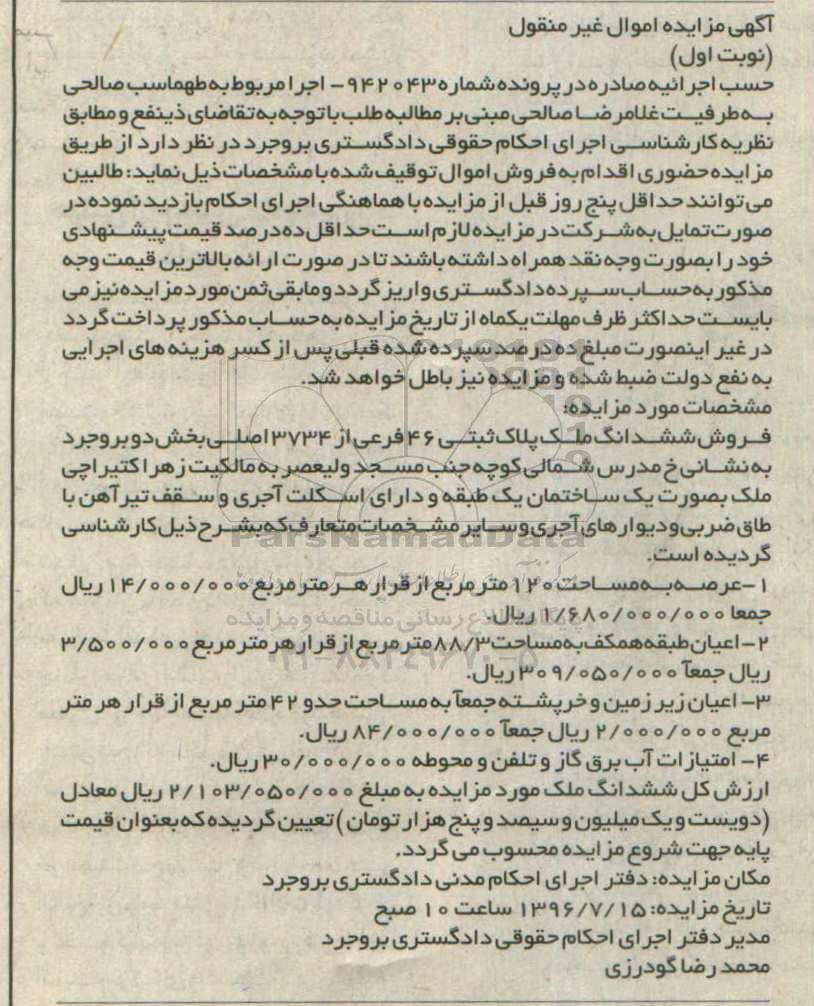 آگهی مزایده اموال غیر منقول
(نوبت اول)
حسب اجرائیه صادره در پرونده شماره ۹۴۲۰۴۳- اجرا مربوط به طهماسب صالحی
به طرفیت غلامرضا صالحی مبنی بر مطالبه طلب با توجه به تقاضای ذینفع و مطابق
نظریه کارشناسی اجرای احکام حقوقی دادگستری بروجرد در نظر دارد از طریق
مزایده حضوری اقدام به فروش اموال توقیف شده با مشخصات ذیل نماید: طالبین
می توانند حداقل پنج روز قبل از مزایده با هماهنگی اجرای احکام بازدید نموده در
صورت تمایل به شرکت در مزایده لازم است حداقل ده درصد قیمت پیشنهادی
خود را بصورت وجه نقد همراه داشته باشند تا در صورت ارائه بالاترین قیمت وجه
مذکور به حساب سپرده دادگستری واریز گردد و مابقی ثمن مورد مزایده نیز می
بایست حداکثر ظرف مهلت یکماه از تاریخ مزایده به حساب مذکور پرداخت گردد
در غیر اینصورت مبلغ ده درصد سپرده شده قبلی پس از کسر هزینه های اجرایی
به نفع دولت ضبط شده و مزایده نیز باطل خواهد شد.
مشخصات مورد مزایده:
فروش ششدانگ ملک پلاک ثبتی ۴۶ فرعی از ۳۷۳۴ اصلی بخش دو بروجرد
به نشانی خ مدرس شمالی کوچه جنب مسجد ولیعصر به مالکیت زهرا کتیراچی
ملک بصورت یک ساختمان یک طبقه و دارای اسکلت آجری و سقف تیرآهن با
طاق ضربی و دیوارهای آجری و سایر مشخصات متعارف که بشرح ذیل کارشناسی
گردیده است.
ParsNamadData
۱-عرصه به مساحت ۱۲۰ متر مربع از قرار هر متر مربع ۱۴/۰۰۰/۰۰۰ ریال
جمعا ۱/۶۸۰/۰۰۰/۰۰۰ ریال.
۲-اعیان طبقه همکف به مساحت ۸۸/۳ متر مربع از قرار هر متر مربع ۳/۵۰۰/۰۰۰
ریال جمعآ ۳۰۹/۰۵۰/۰۰۰ ریال.
۳- اعیان زیر زمین و خرپشته جمعآ به مساحت حدو ۴۲ متر مربع از قرار هر متر
مربع ۲/۰۰۰/۰۰۰ ریال جمعآ ۸۴/۰۰۰/۰۰۰ ریال.
۴- امتیازات آب برق گاز و تلفن و محوطه ۳۰/۰۰۰/۰۰۰ ریال.
ارزش کل ششدانگ ملک مورد مزایده به مبلغ ۲/۱۰۳/۰۵۰/۰۰۰ ریال معادل
(دویست و یک میلیون و سیصد و پنج هزار تومان) تعیین گردیده که بعنوان قیمت
پایه جهت شروع مزایده محسوب می گردد.
مکان مزایده: دفتر اجرای احکام مدنی دادگستری بروجرد
تاریخ مزایده: ۱۳۹۶/۷/۱۵ ساعت ۱۰ صبح
مدیر دفتر اجرای احکام حقوقی دادگستری بروجرد
محمد رضا گودرزی